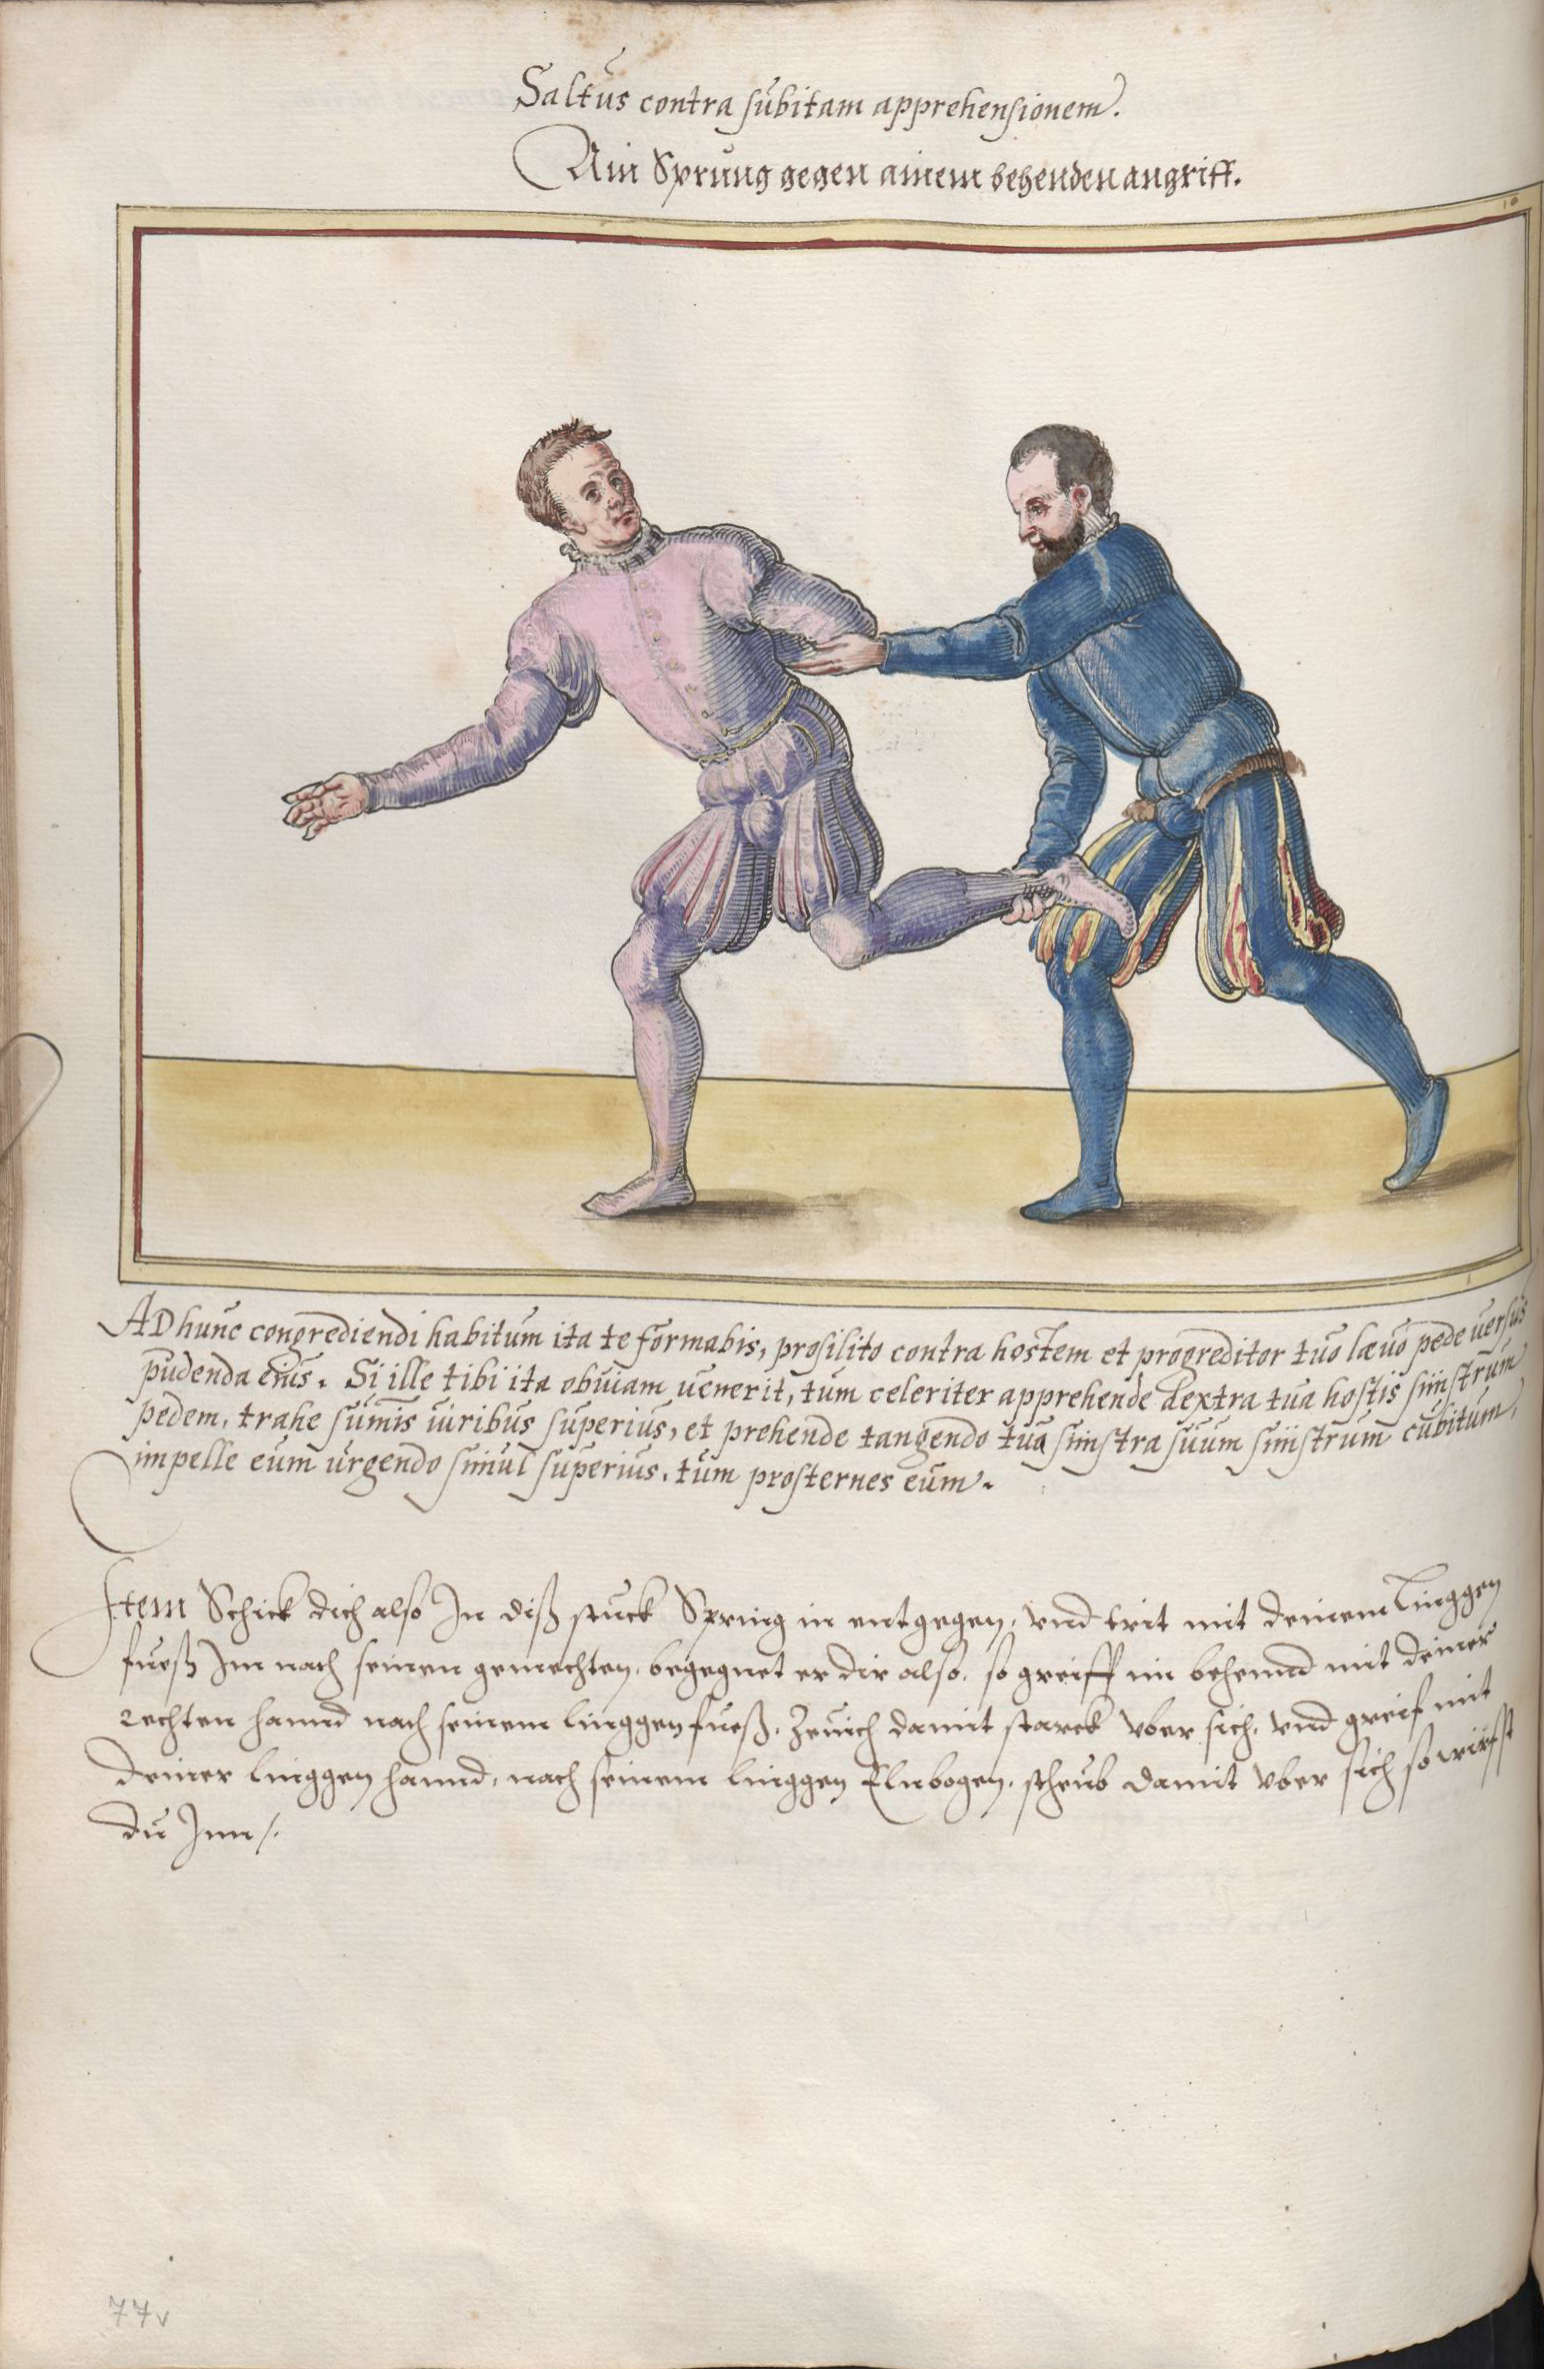 Saltus contra subitam apprehensionem.
Ain Sprung gegen ainem behenden angriff.
AD hunc congrediendi habitum ita te formabis, prosilito contra hostem et progreditor tuo laeuo pede uersus
pudenda eius. Si ille tibi ita obuiam uenerit, tum celeriter apprehende dextra tua hostis sinistrum
pedem, trahe sumis uiribus superius, et prehende tangendo tua sinistra suum sinistrum cubitum,
impelle eum urgendo simul superius, tum prosternes eum.
Item Schick dich also In diß stuck Spring in entgegen, vnd trit mit deinem linggen
fueß Im nach seinen gemechten, begegnet er dir also, so greiff im behennd mit deiner
rechten hannd nach seinem linggen fueß, Zeuch damit starck vber sich, vnd greif mit
deiner linggen hannd, nach seinem linggen Elnbogen, scheub damit vber sich so wirfst
du Inn /.
77v